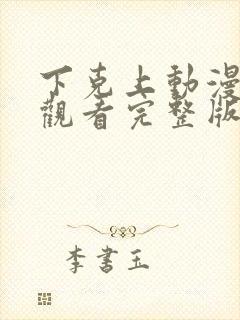 下克上動漫
觀看完整版
李書玉